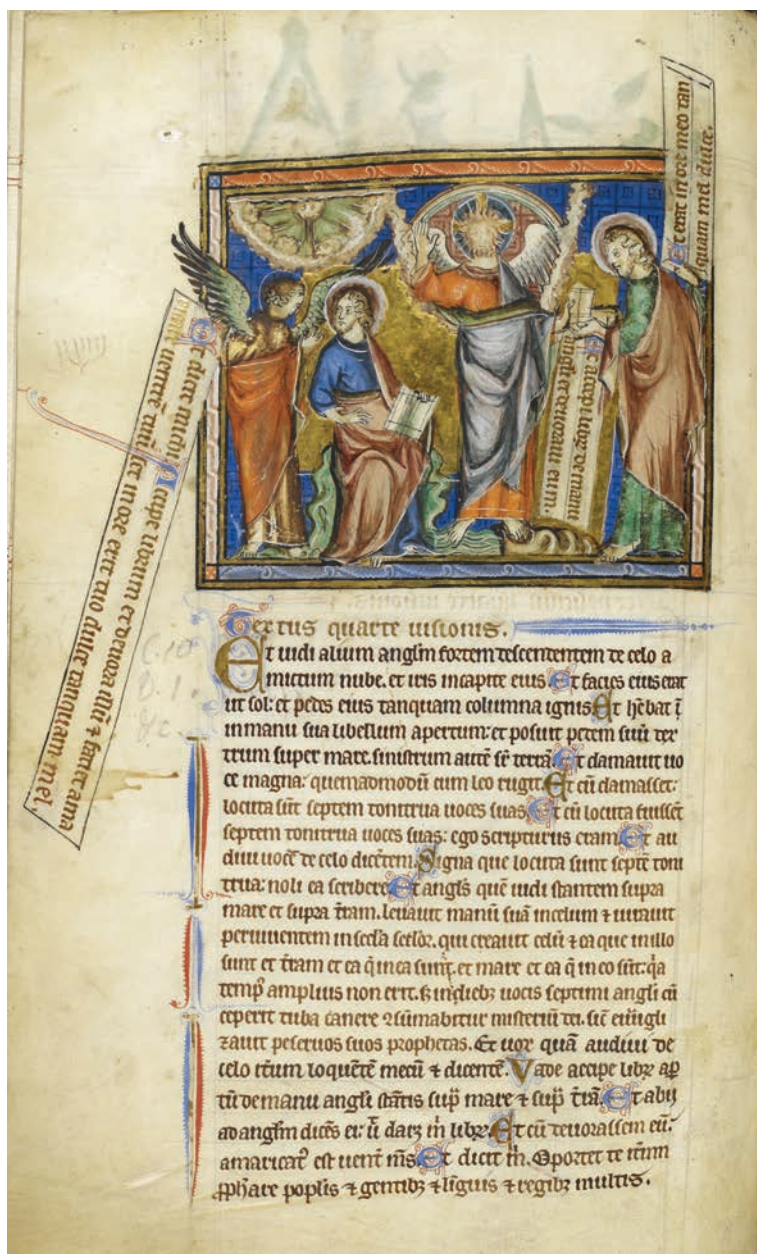 Et erit in ore meo tan
quam mel dulce.
Et accepi librū de manu
angli et deuoraui eum.
Et dicit michi Accipe librum et deuora illū ⁊ faciet ama
uentrē tuū set in ore erit tuo dulce tanquam mel.
Textus quarte uisionis.
Et uidi alium anglm̄ fortem descendentem de celo a
mictum nube. et iris in capite eius. Et facies eius erat
ut sol: et pedes eius tanquam columna ignis Et hēbat ī
in manu sua libellum apertum: et posuit pedem suū dex
trum super mare. sinistrum autē sr̄ terrā Et clamauit uo
ce magna: quemadmodū cum leo rugit. Et cū clamasset:
locuta sūt septem tonitrua uoces suas Et cū locuta fuissēt
septem tonitrua uoces suas: ego scripturus eram. Et au
diui uocē de celo dicētem. Signa que locuta sunt septē toni
trua: noli ea scribere Et angls̄ quē uidi stantem supra
mare et supra tr̄am. leuauit manū suā in celum ⁊ iurauit
per uiuentem in secla sclor̄. qui creauit celū ⁊ ea que in illo
sunt et tr̄am et ea q̄ in ea sunt. et mare et ea q̄ in eo sūt: q̄a
temp̄ amplius non erit. s; in dieb; uocis septimi angli cū
ceperit tuba canere ɔsūmabitur misteriū dei. sic̄ euāgli
zauit per seruos suos prophetas. Et uox quā audiui de
celo it̄um loquētē mecū ⁊ dicentē. Vade accipe libr̄ ap̄
tū de manu angli stātis sup̄ mare ⁊ sup̄ tr̄ā. Et abii
ad anglm̄ dicēs ei: ut̄ daret m̄ libr̄. Et cū deuorassem eū:
amaricat' est uent̄ m̄s Et dicit m̄. Oportet te it̄um
ꝓphare poplis ⁊ gentib; ⁊ liguis ⁊ regib; multis.